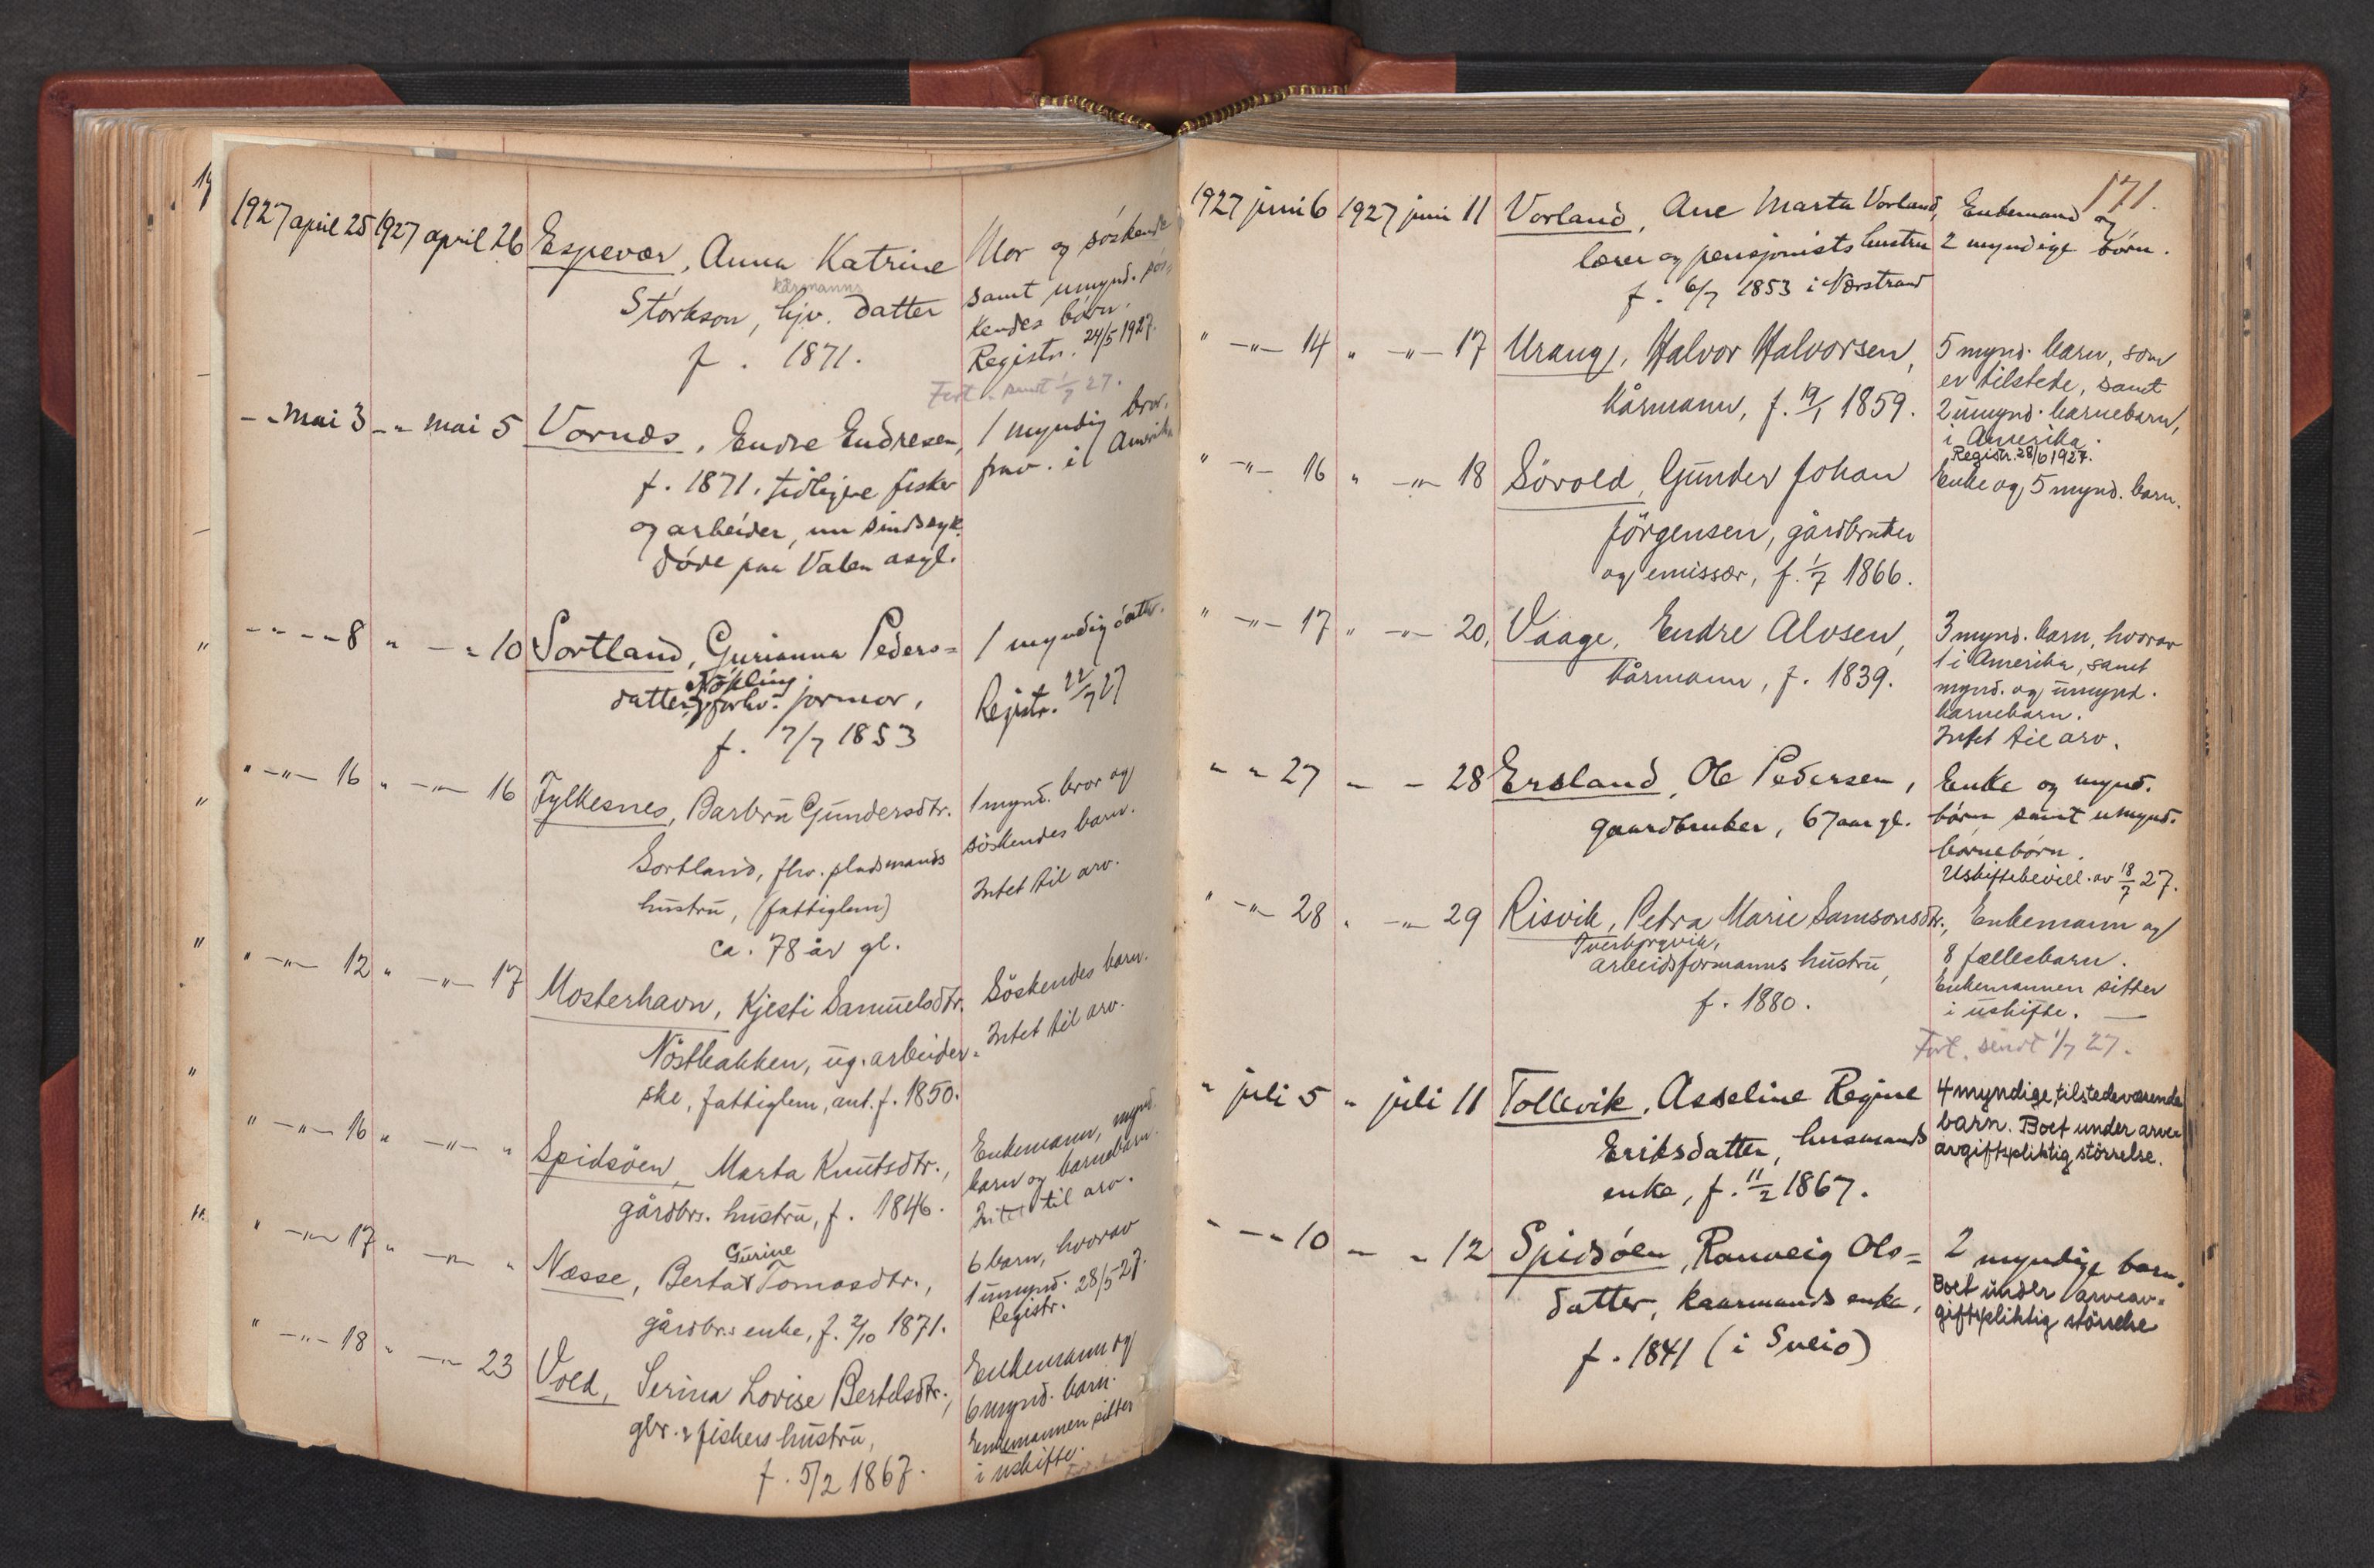 1927 april 25 1927 april 26 Espevær, Anna Katrine Mor og søskende
kårmanns
Störkson, hjv. datter samt umynd. søs-
f. 1871. kendes börn.
Registr. 24/5 1927.
sendt 1/7 27.
- " mai 3 - " mai 5 Vornæs, Endre Endresen, 1 myndig bror,
f. 1871. tidligere fisker frav. i Amerika
og arbeider, nu sindssyk.
Döde paa Valen asyl.
" - " - 8 " - " 10 Sortland, Gurianna Peders= 1 myndig datter.
Nökling
datter, forhv. jormor, Registr. 22/7 27
f. 7/7 1853
" -"- 16 " -"- 16 Fylkesnes, Barbru Gundersdtr. 1 mynd. bror og
Sortland, fhv. pladsmands söskendes barn.
hustru, (fattiglem) Intet til arv.
ca. 78 år gl.
" -"- 12 " -"- 17 Mosterhavn, Kjesti Samuelsdtr. Söskendes barn.
Nöstbakken, ug. arbeider- Intet til arv.
ske, fattiglem, ant. f. 1850.
" -"- 16 " -"- " Spidsöen, Marta Knutsdtr., Enkemann, mynd.
gårdbrs. hustru, f. 1846. barn og barnebarn.
Intet til arv.
" -"- 17 " -"- " Næsse, Berta Tomasdtr., 6 barn, hvorav
Gurine
gårdbr.s enke, f. 2/10 1871. 1 umynd. 28/5 27.
Registr.
" -"- 18 " -"- 23 Vold, Serina Lovise Bertelsdtr., Enkemann og
gbr. & fiskers hustru, 6 mynd. barn.
f. 5/2 1867. Enkemannen sitter
i uskifte.
171.
1927 juni 6 1927 juni 11 Vorland, Ane Marta Vorland, Enkemand og
lærer og pensjonists hustru 2 myndige börn.
f. 6/7 1853 i Nærstrand
" -"- 14 " -"- 17 Urang, Halvor Halvorsen, 5 mynd. barn, som
er tilstede, samt
kårmann, f. 19/1 1859. 2 umynd. barnebarn,
i Amerika.
Registr. 28/6 1927.
" -"- 16 " -"- 18 Sörvold, Gunder Johan Enke og 5 mynd. barn.
Jörgensen, gårdbruker
og emissær, f. 1/7 1866.
" -"- 17 " -"- 20, Vaage, Endre Alvsen, 3 mynd. barn, hvorav
1 i Amerika, samt
kårmann, f. 1839. mynd. og umynd.
barnebarn.
Intet til arv.
" " 27 - - 28 Ersland, Ole Pedersen, Enke og mynd.
gaardbruker, 67 aar gl. börn samt umynd.
börnebörn.
Uskiftebevill. av 18/7 27.
" -"- 28 " -"- 29 Risvik, Petra Marie Samsonsdtr., Enkemann og
Tverborgvik,
arbeidsformanns hustru, 8 fællesbarn.
f. 1880. Enkemannen sitter
i uskifte. —
Fort. sendt 1/7 27.
" juli 5 " juli 11 Tollevik, Asseline Regine 4 myndige, tilstedeværende
Eriksdatter, husmands barn. Boet under arve-
enke, f. 11/2 1867. avgiftspliktig störrelse.
" - " 10 - " 12 Spidsöen, Ranveig Ols= 2 myndige barn.
datter, kaarmands enke, Boet under arveav-
f. 1841 (i Sveio) giftspliktig störrelse